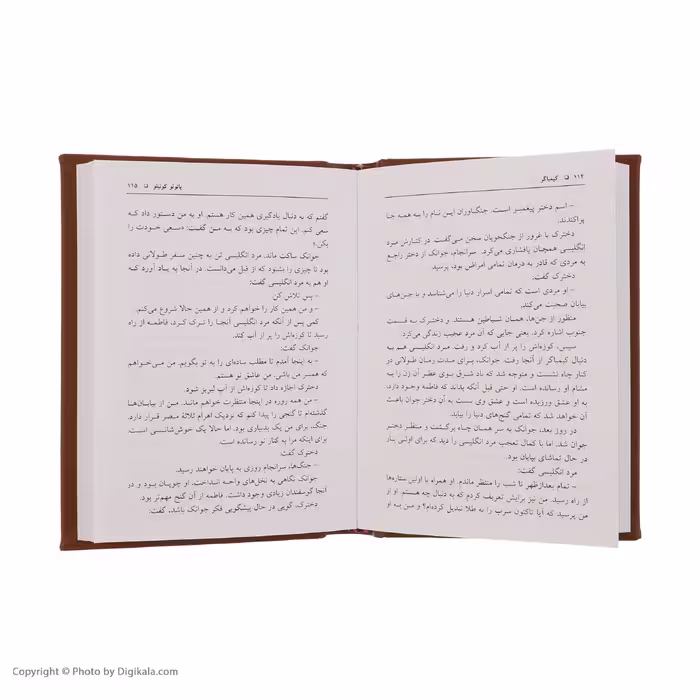 ۱۱۴ ❑ کیمیاگر
– اسم دختر پیغمبر است. جنگاوران این نام را به همه جا
پراکندند.
دخترک با غرور از جنگجویان سخن می‌گفت. در کنارش مرد
انگلیسی همچنان پافشاری می‌کرد. سرانجام، جوانک از دختر راجع
به مردی که قادر به درمان تمامی امراض بود، پرسید
دخترک گفت:
– او مردی است که تمامی اسرار دنیا را می‌شناسد و با جن‌های
بیابان صحبت می‌کند.
منظور از جن‌ها، همان شیاطین هستند. و دخترک به قسمت
جنوب اشاره کرد. یعنی جایی که آن مرد عجیب زندگی می‌کرد.
سپس، کوزه‌اش را پر از آب کرد و رفت. مرد انگلیسی هم به
دنبال کیمیاگر از آنجا رفت. جوانک، برای مدت زمان طولانی در
کنار چاه نشست و متوجه شد که باد شرق بوی عطر آن زن را به
مشام او رسانده است. او حتی قبل آنکه بداند که فاطمه وجود دارد،
به او عشق ورزیده است و عشق وی نسبت به آن دختر جوان باعث
آن خواهد شد که تمامی گنج‌های دنیا را بیابد.
در روز بعد، جوانک به سر همان چاه برگشت و منتظر دختر
جوان شد. اما با کمال تعجب مرد انگلیسی را دید که برای اولین بار
در حال تماشای بیابان بود.
مرد انگلیسی گفت:
– تمام بعدازظهر تا شب را منتظر ماندم. او همراه با اولین ستاره‌ها
از راه رسید. من نیز برایش تعریف کردم که به دنبال چه هستم. او از
من پرسید که آیا تاکنون سرب را به طلا تبدیل کرده‌ام؟ و من به او
پائولو کوئیلو ❑ ۱۱۵
گفتم که به دنبال یادگیری همین کار هستم. او به من دستور داد که
سعی کنم. این تمام چیزی بود که به من گفت: «سعی خودت را
بکن.»
جوانک ساکت ماند. مرد انگلیسی تن به چنین سفر طولانی داده
بود تا چیزی را بشنود که از قبل می‌دانست. در آنجا به یاد آورد که
او هم به مرد انگلیسی گفت:
– پس تلاش کن
– و من همین کار را خواهم کرد و از همین حالا شروع می‌کنم.
کمی پس از آنکه مرد انگلیسی آنجا را ترک کرد، فاطمه از راه
رسید تا کوزه‌اش را پر از آب کند.
جوانک گفت:
– به اینجا آمدم تا مطلب ساده‌ای را به تو بگویم. من می‌خواهم
که همسر من باشی. من عاشق تو هستم.
دخترک اجازه داد تا کوزه‌اش از آب لبریز شود.
– من همه روزه در اینجا منتظرت خواهم ماند. من از بیابان‌ها
گذشته‌ام تا گنجی را پیدا کنم که نزدیک اهرام ثلاثه مصر قرار دارد.
جنگ، برای من یک بدبیاری بود. اما حالا یک خوش‌شانسی است.
برای اینکه مرا به کنار تو رسانده است.
دخترک گفت:
– جنگ‌ها، سرانجام روزی به پایان خواهند رسید.
جوانک نگاهی به نخل‌های واحه انداخت. او چوپان بود و در
آنجا گوسفندان زیادی وجود داشت. فاطمه از آن گنج مهم‌تر بود.
دخترک، گویی در حال پیشگویی فکر جوانک باشد، گفت:
Copyright © Photo by Digikala.com